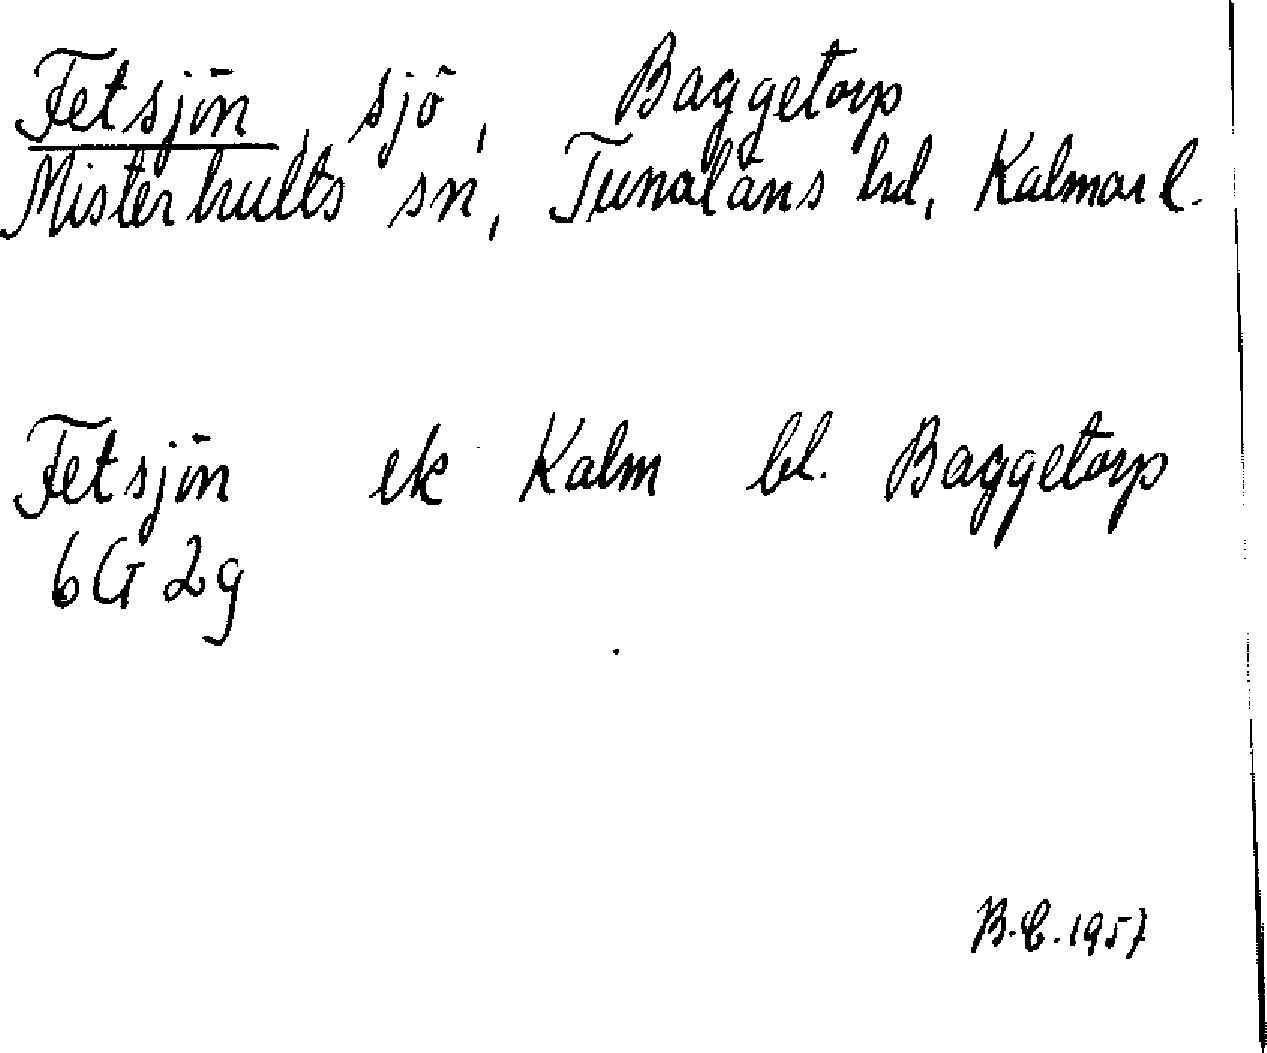 Fetsjön, sjö, Baggetorp
Misterhults sn, Tunaläns hd, Kalmar l.
Fetsjön ek Kalm bl. Baggetorp
6G 2g
B.C. 1957